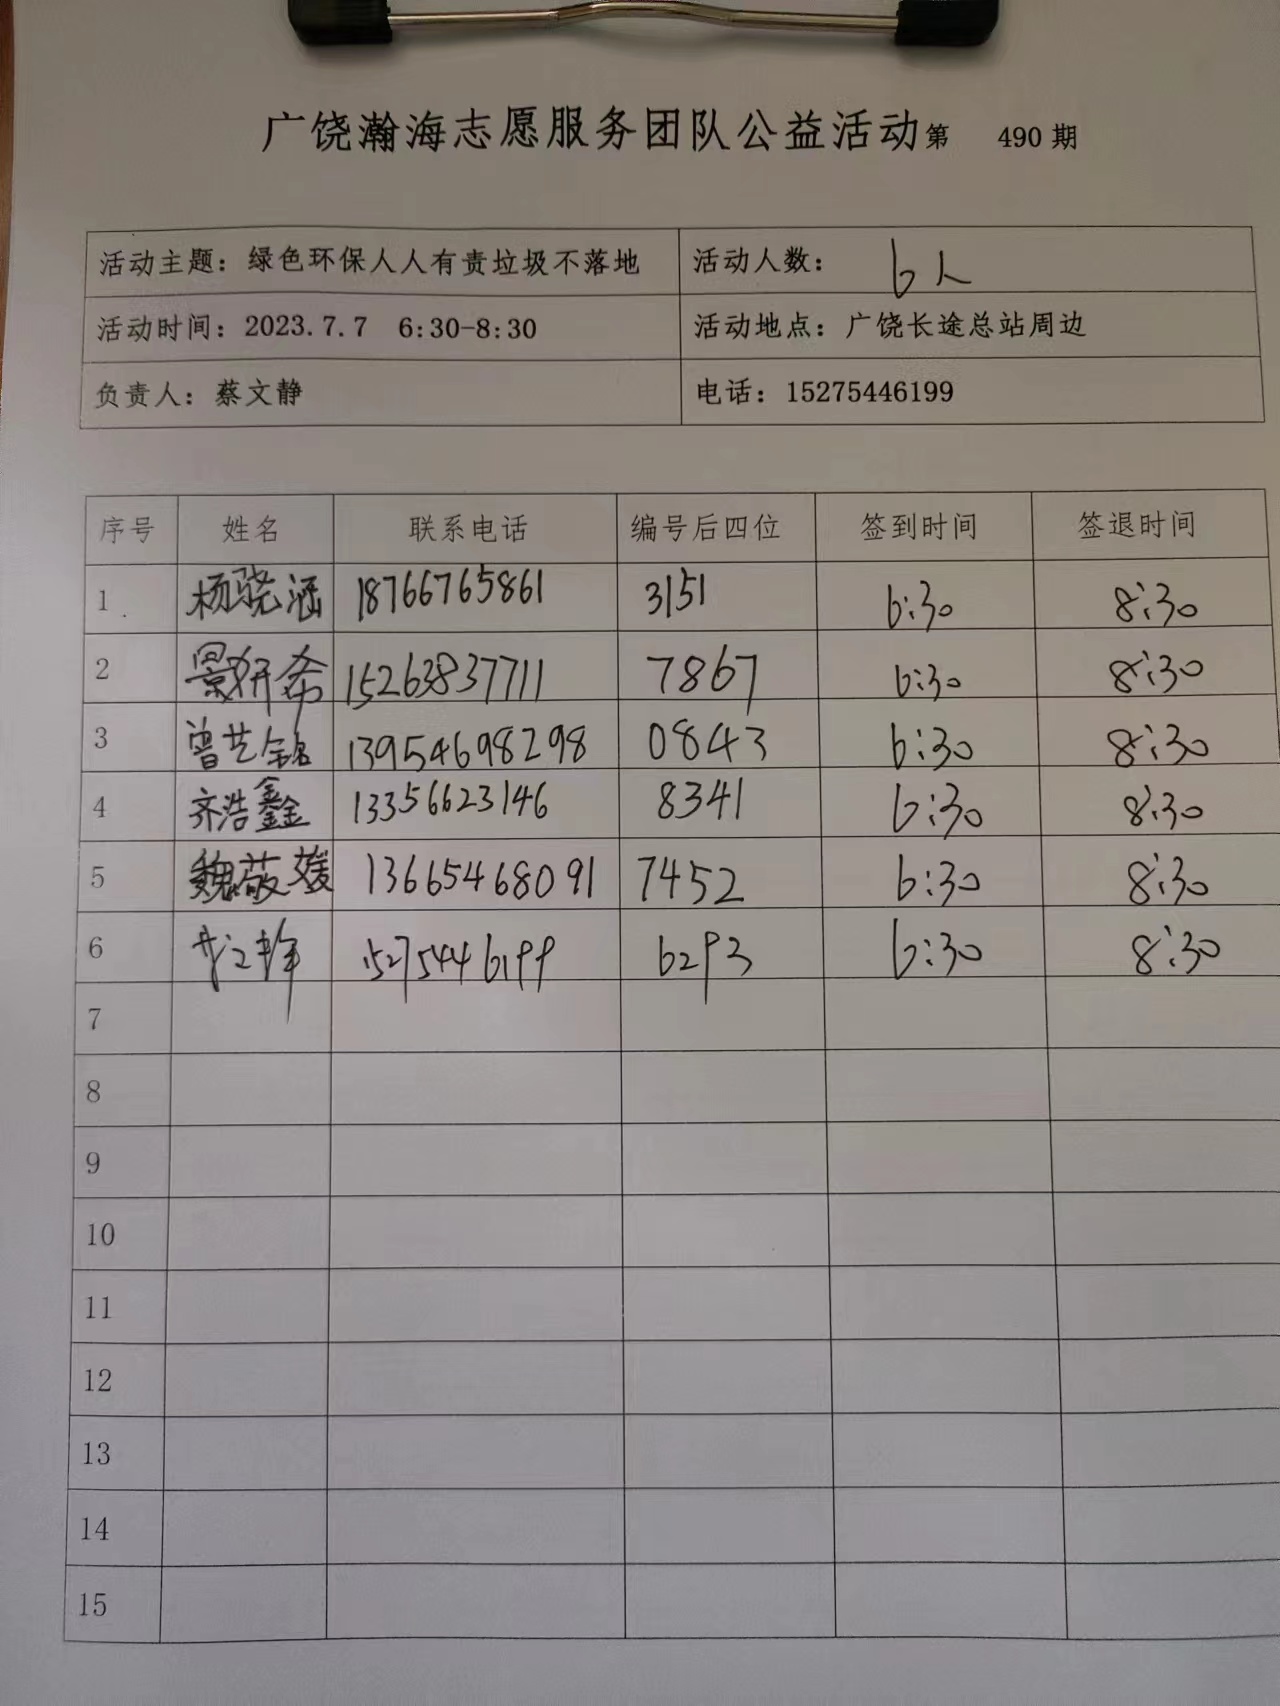 广饶瀚海志愿服务团队公益活动第 490 期
活动主题：绿色环保人人有责垃圾不落地 活动人数： 6人
活动时间：2023.7.7 6:30-8:30 活动地点：广饶长途总站周边
负责人：蔡文静 电话：15275446199
序号 姓名 联系电话 编号后四位 签到时间 签退时间
1 杨骁涵 18766765861 3151 6:30 8:30
2 景妍希 15263837711 7867 6:30 8:30
3 曾艺铭 13954698298 0843 6:30 8:30
4 齐浩鑫 13356623146 8341 6:30 8:30
5 魏 媛 13665468091 7452 6:30 8:30
6 15275446199 6293 6:30 8:30
7
8
9
10
11
12
13
14
15